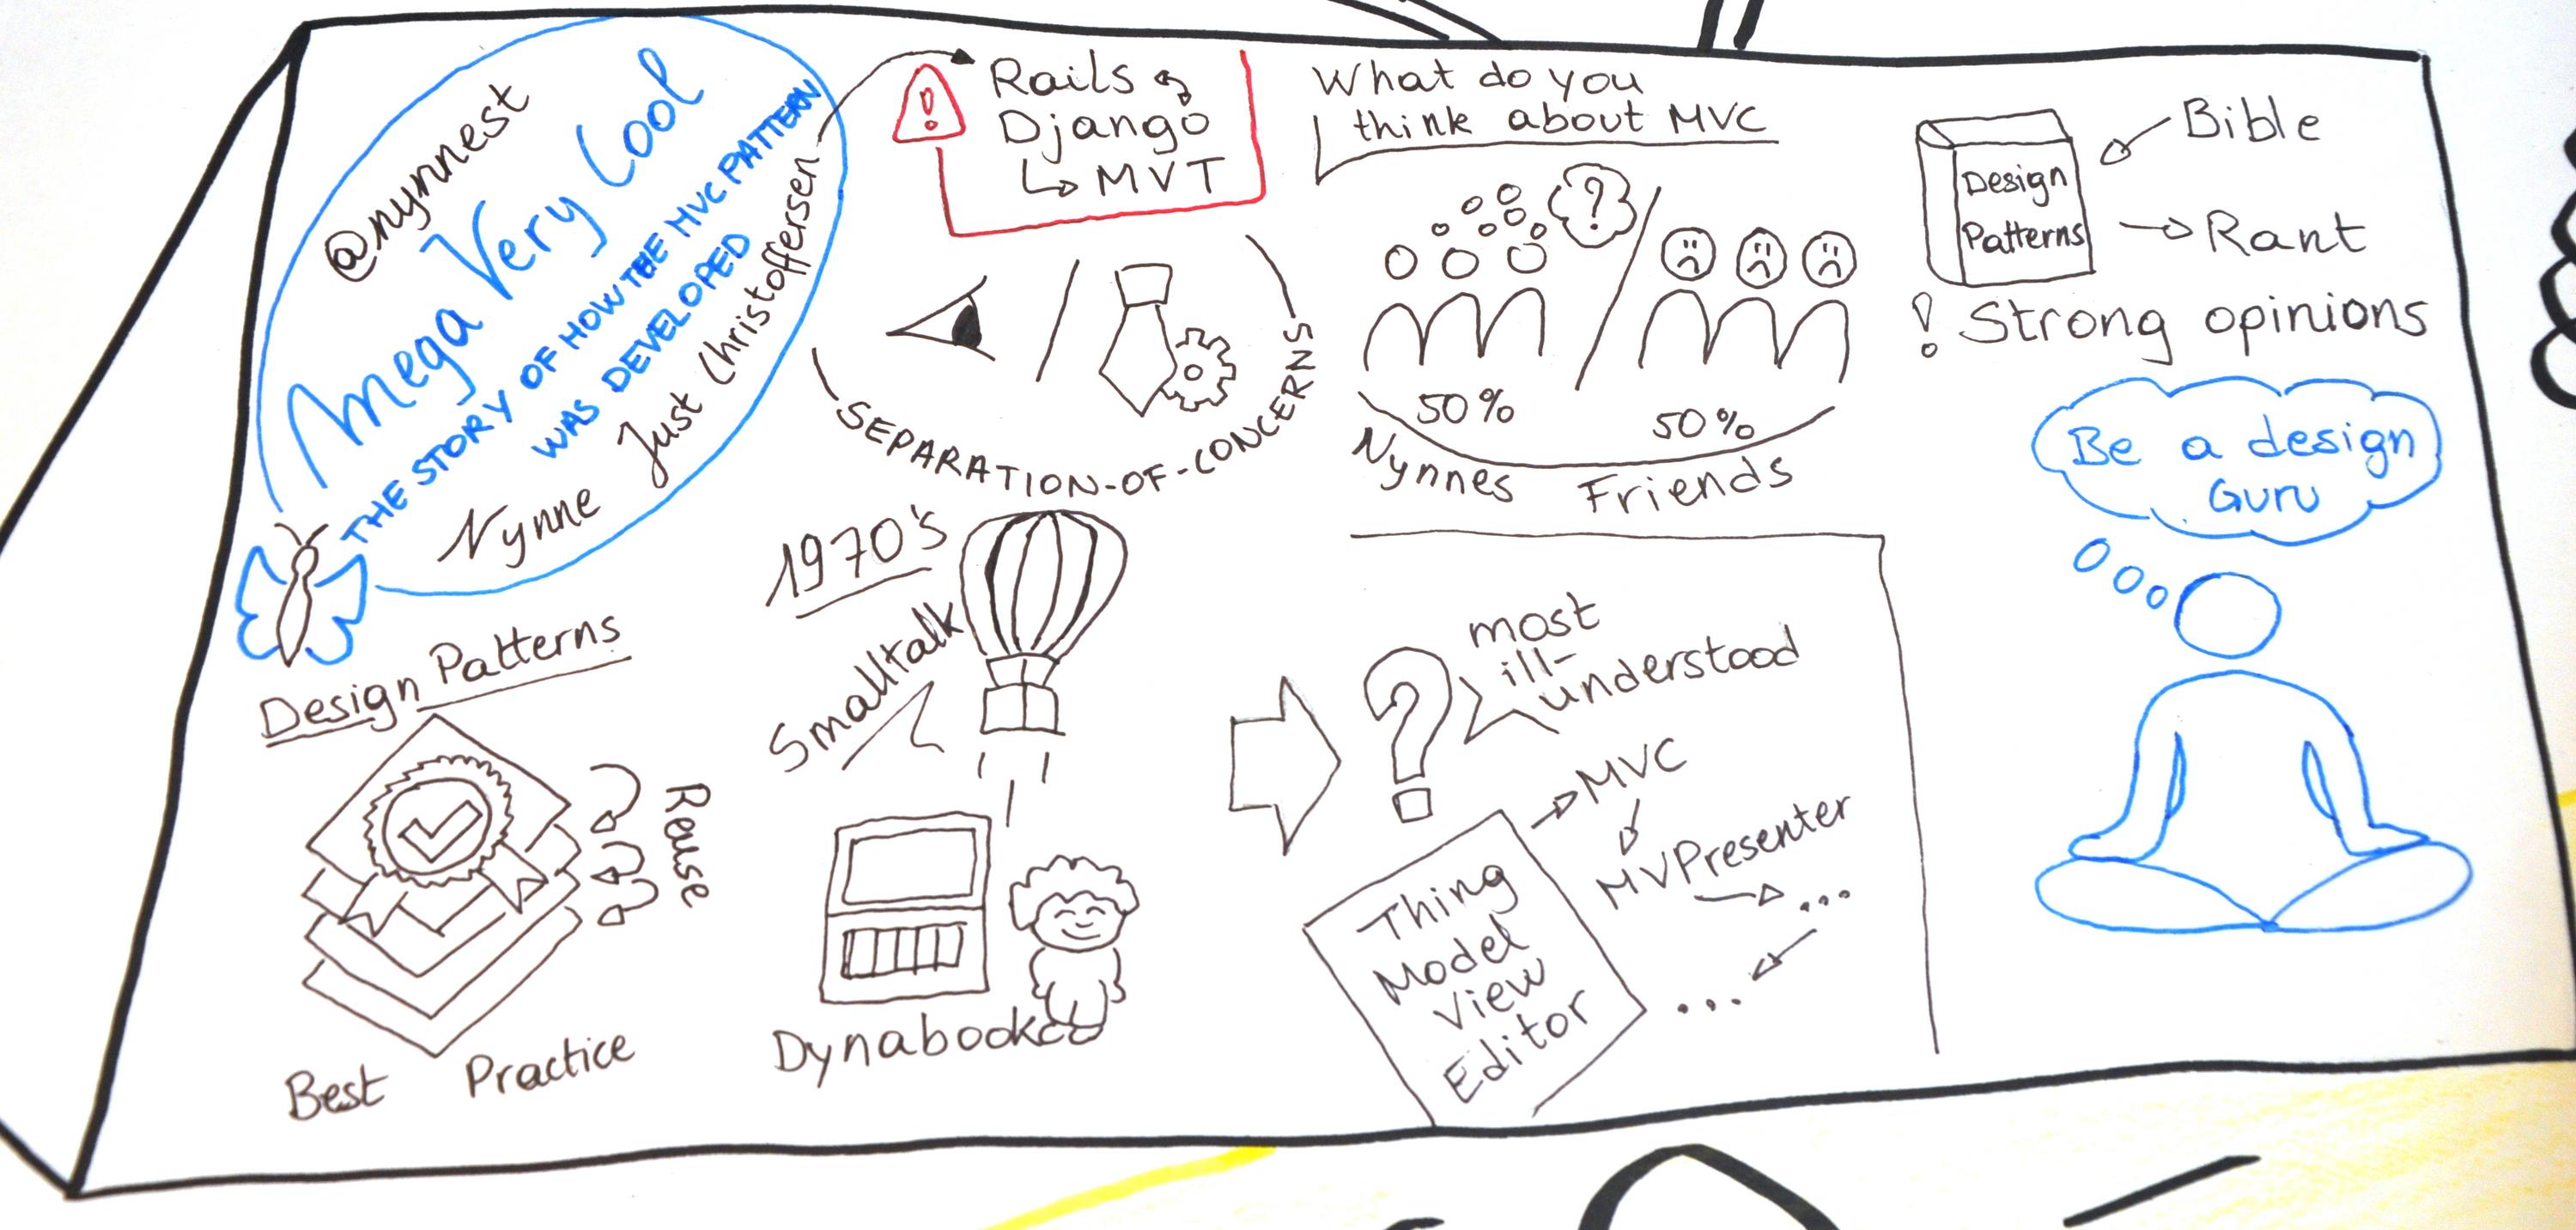 @nynnest
Mega Very Cool
THE STORY OF HOW THE MVC PATTERN
WAS DEVELOPED
Nynne Just Christoffersen
!
Rails &
Django
MVT
SEPARATION-OF-CONCERNS
What do you
think about MVC
?
50%
50%
Nynnes Friends
Design
Patterns
Bible
Rant
! Strong opinions
Be a design
Guru
Design Patterns
Reuse
Best Practice
1970's
Smalltalk
Dynabook
?
most
ill-
understood
Thing
Model
View
Editor
MVC
MVPresenter
...
...